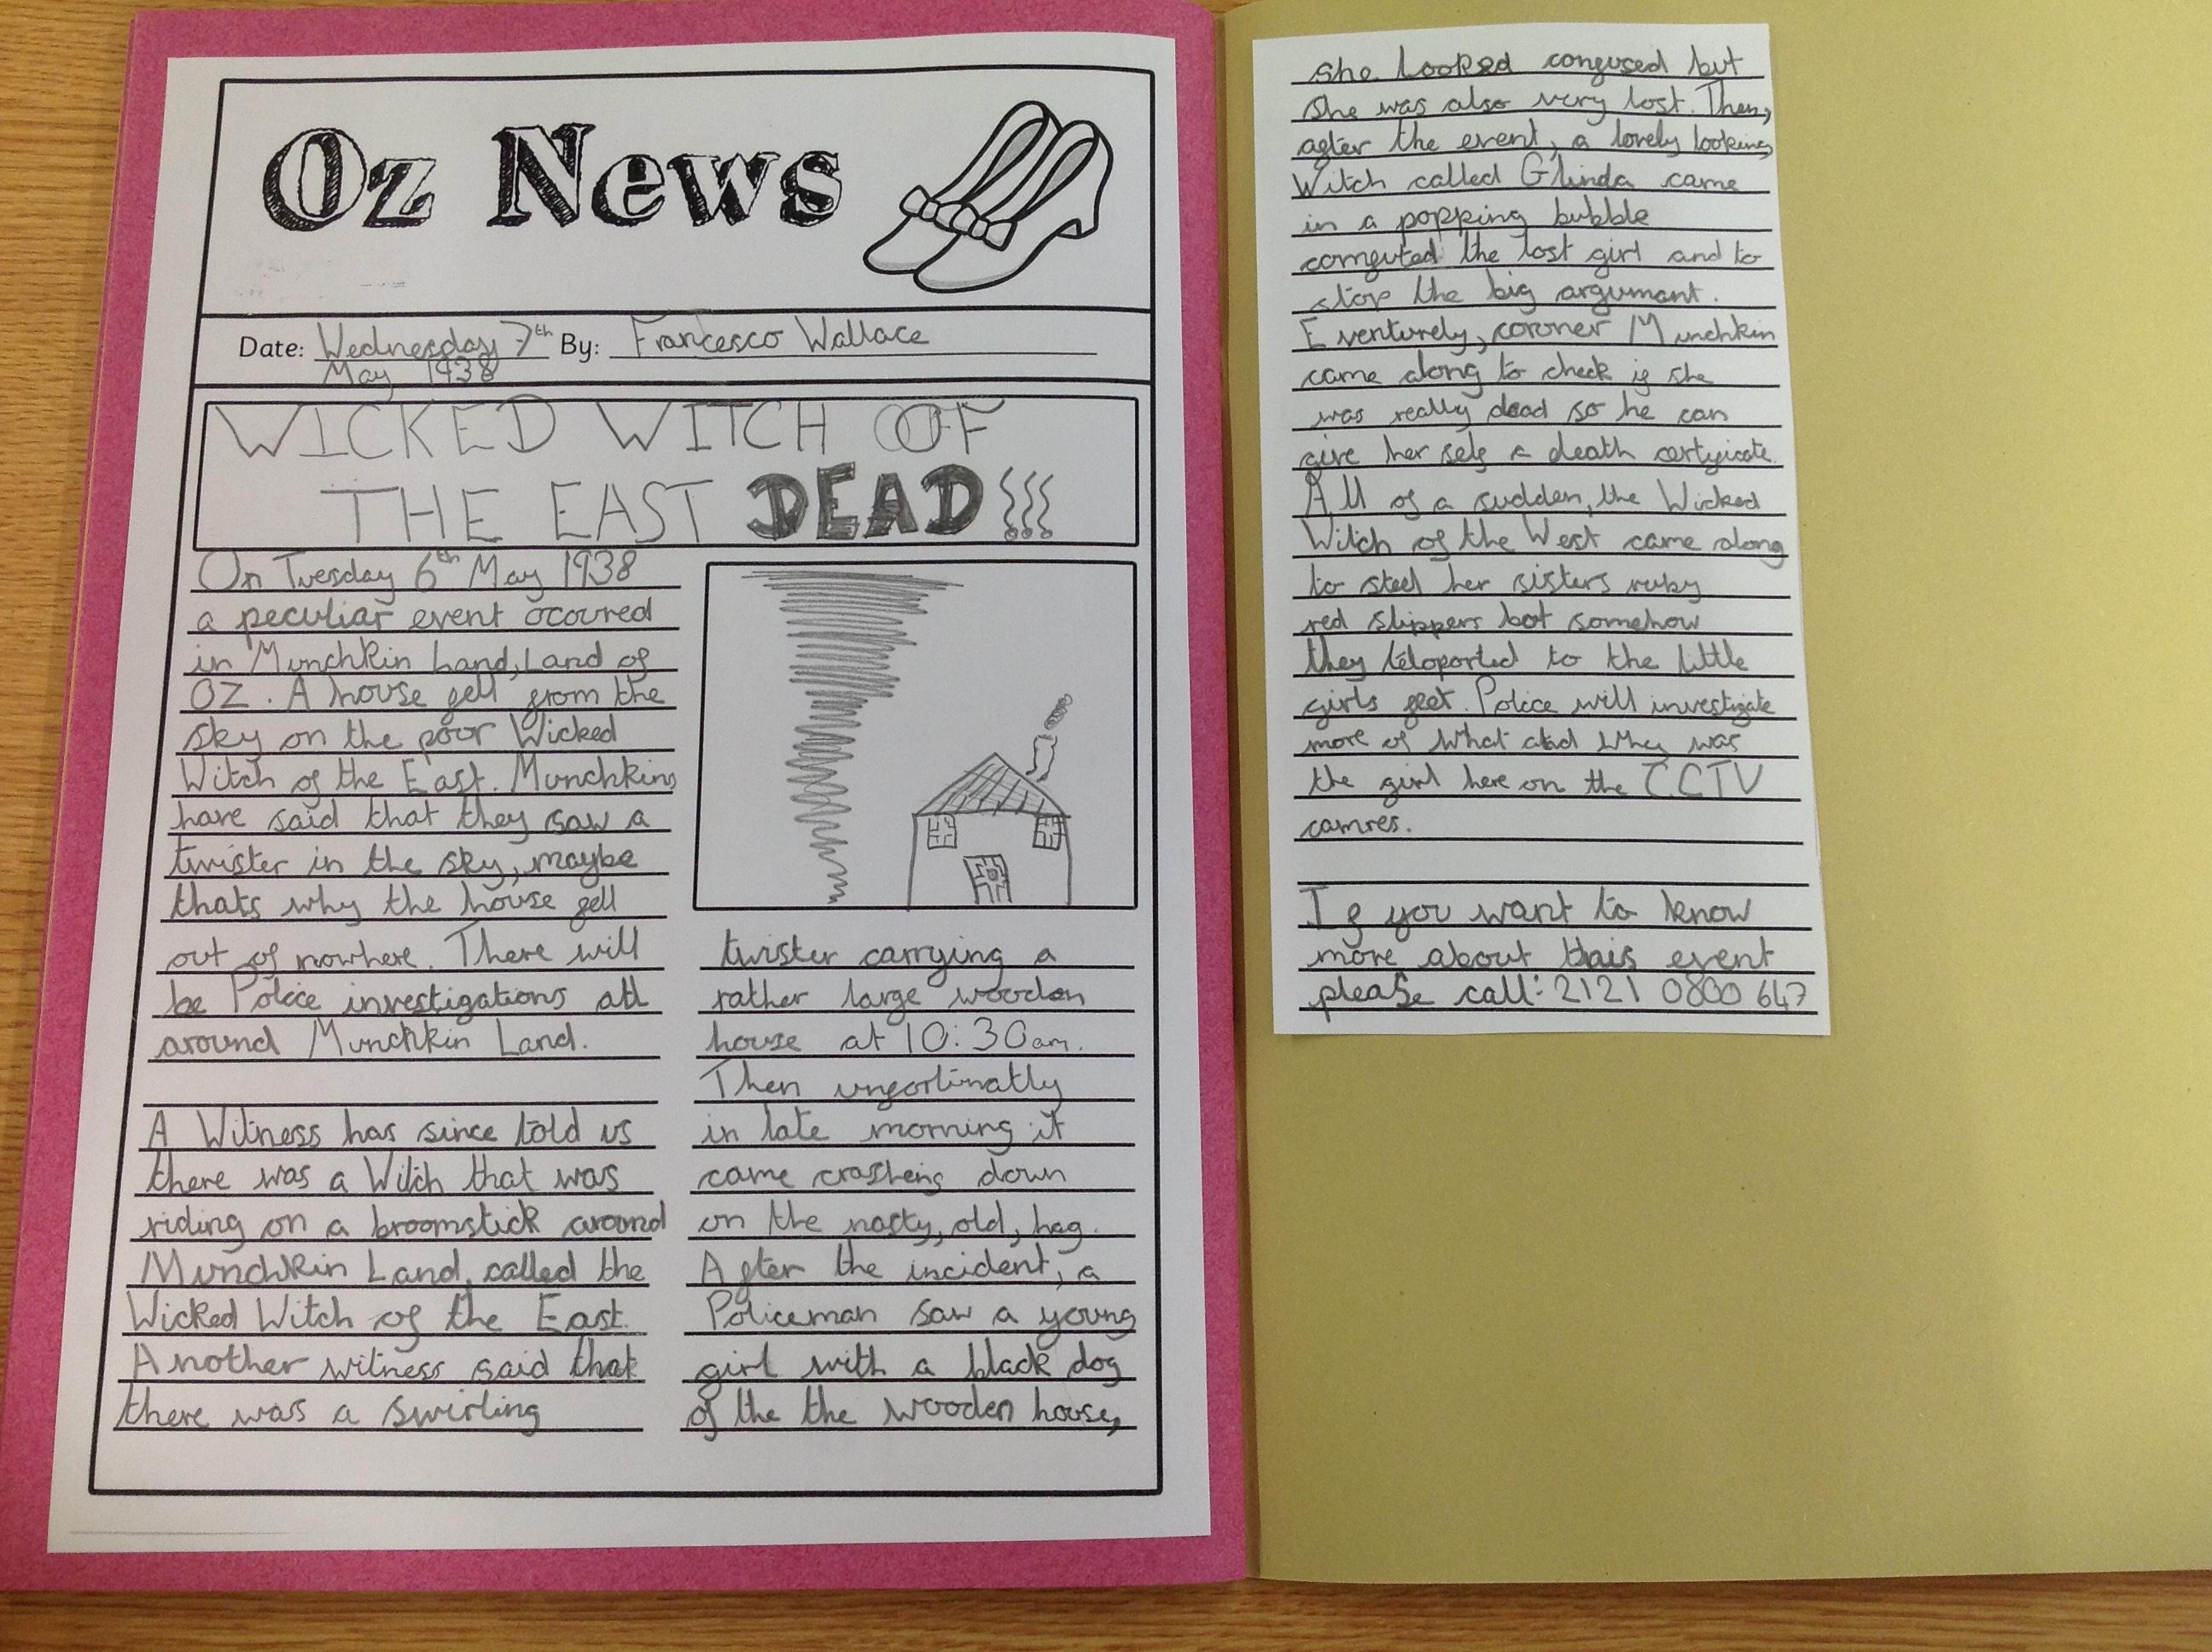 Oz News
Date: Wednesday 7th By: Francesco Wallace
May 1938
WICKED WITCH OF
THE EAST DEAD!!!
On Tuesday 6th May 1938
a peculiar event ocoured
in Munchkin Land, Land of
OZ. A house fell from the
sky on the poor Wicked
Witch of the East. Munchkins
have said that they saw a
twister in the sky, maybe
thats why the house fell
out of nowhere. There will
be Police investigations all
around Munchkin Land.
A Witness has since told us
there was a Witch that was
riding on a broomstick around
Munchkin Land, called the
Wicked Witch of the East.
Another witness said that
there was a swirling
twister carrying a
rather large wooden
house at 10:30am.
Then unfortinatly
in late morning it
came crasheing down
on the nasty, old, hag.
After the incident, a
Policeman saw a young
girl with a black dog
of the the wooden house,
she looked confused but
she was also very lost. Then,
after the event, a lovely looking
Witch called Glinda came
in a popping bubble
comfuted the lost girl and to
stop the big argumant.
Eventurely, coroner Munchkin
came along to check if she
was really dead so he can
give her self a death certificate.
All of a sudden, the Wicked
Witch of the West came along
to steel her sisters ruby
red slippers but somehow
they teloported to the little
girls feet. Police will investigate
more of what and why was
the girl here on the CCTV
camres.
If you want to know
more about this event
please call: 2121 0800 647